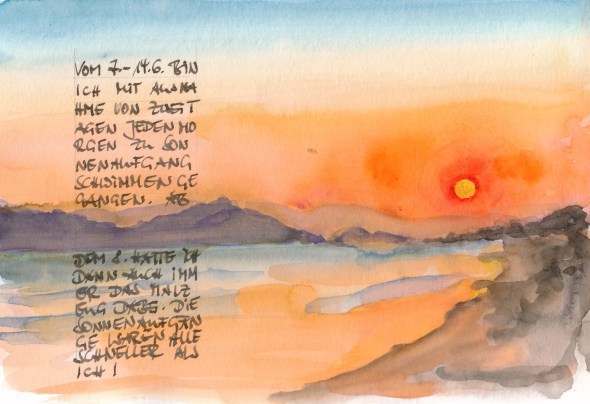 VOM 7.-14.6. BIN
ICH MIT AUSNA
HME VON ZWEI T
AGEN JEDEN MO
RGEN ZU SON
NENAUFGANG
SCHWIMMEN GE
GANGEN. AB
DEM 8. HATTE ICH
DANN AUCH IMM
ER DAS MALZ
EUG DABEI. DIE
SONNENAUFGÄN
GE WAREN ALLE
SCHNELLER ALS
ICH!